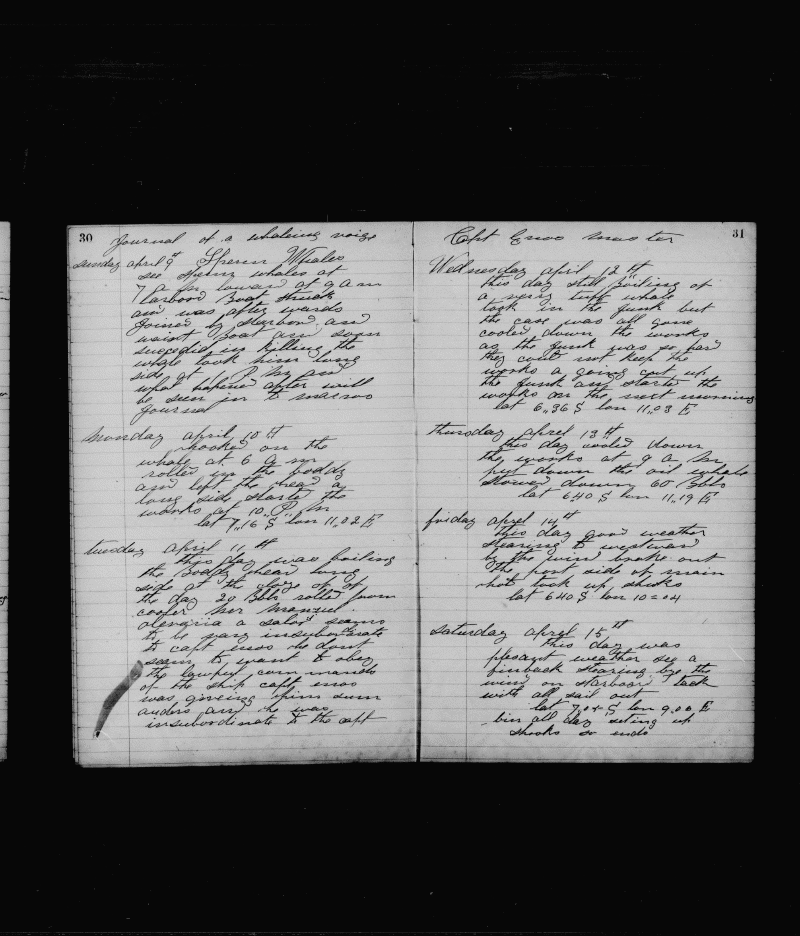 30
Journal of a whaleing voige
Sunday april 9th Sperm Whales
see Sperm whales at
7 a m lowerd at 9 a m
larbord Boat struck
and was after wards
Joined by starbord and
waist Boat and soon
succedid in killing the
whale took him long
side at P M and
what hapend after will
be seen in to marrows
Journal
monday april 10th
hooked on the
whale at 6 a m
rolled in the boddy
and left the head a
long side started the
works at 10 P m
lat 7,,16 S lon 11,,02 E
tuesday april 11th
this day was boiling
the Boddy a head long
side at the close of of
the day 20 Bbls rolled from
cooler mr manuel
a salor seams
to be very insubordinate
to capt enos he dont
seam to want to obey
the lawful com mands
of the ship capt enos
was giveing him sum
orders and he was
insubordinate to the capt
31
Cpt Enos master
Wednesday april 12th
this day still boiling of
a very tuff whale
took in the junk but
the case was all gone
cooled down the works
as the junk was so hard
they could not keep the
works a going cut up
the junk and started the
works on the next morning
lat 6,,36 S lon 11,,03 E
thursday aprel 13th
this day cooled down
the works at 9 a m
put down the oil whale
stowed down 60 Bbls
lat 6 40 S lon 11,,19 E
friday aprel 14th
this day good weather
stearing to westward
by the wind broke out
the port side of main
hold took up shooks
lat 6 40 S lon 10=04
Saturday aprel 15th
this day was
plesant weather see a
finback stearing by the
wind on starbord tack
with all sail out
lat 7,04 S lon 9,00 E
bin all day seting up
shooks so ends